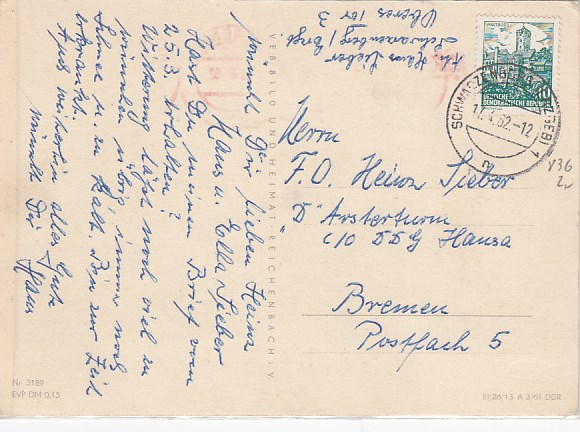 Abs. Hans Sieber
Schwarzenberg / Erzgeb.
Oberes Tor 3
wünscht Dir lieben Heinz
Hans u. Ella Sieber
Hast Du meinen Brief vom
25.3. erhalten?
Witterung läßt noch viel zu
wünschen übrig, immer noch
Schnee u. zu kalt. Bin zur Zeit
erkrankt.
weiterhin alles Gute
wünscht Dir Hans
VEB BILD UND HEIMAT · REICHENBACH i. V.
WARTBURG
DEUTSCHE
DEMOKRATISCHE REPUBLIK
SCHWARZENBERG (ERZGEB)
17.4.62.-12
Herrn
F.O. Heinz Sieber
D "Arsterturm"
c/o DDG Hansa
Bremen
Postfach 5
Nr. 3189
EVP DM 0,15
III/26/13 A 3/61 DDR